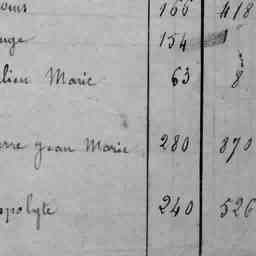 166 418
154 1
lien Marie 63 8
rre Jean Marie 280 870
ppolyte 240 526